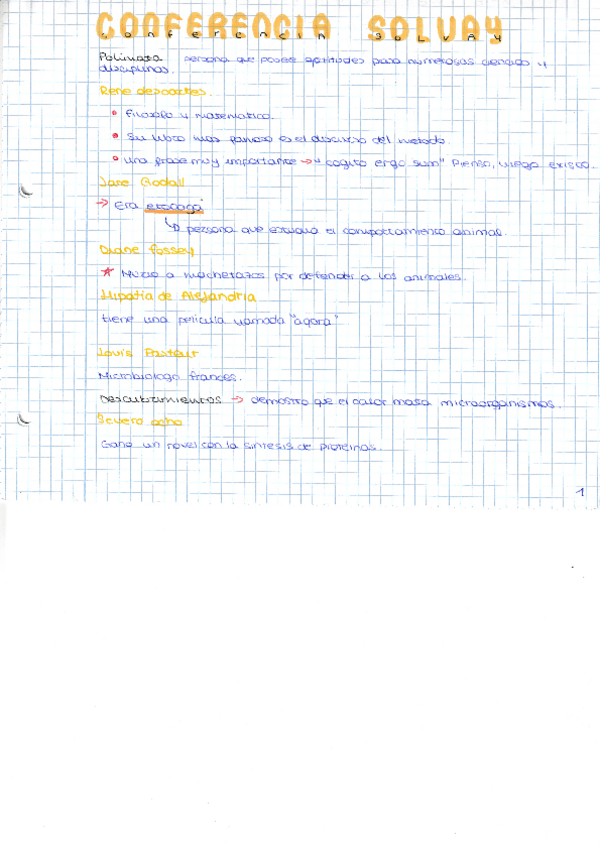 CONFERENCIA SOLVAY
conferencia solvay
Polimata persona que posee aptitudes para numerosas ciencias y
disciplinas.
Rene descartes.
• Filosofo y matematico.
• Su libro mas famoso es el discurso del metodo.
• Una frase muy importante → "cogito ergo sum" Pienso, luego existo.
Jane Godall
→ Era etologa
↳ persona que estudia el comportamiento animal.
Diane fossey
* Murio a machetazos por defender a los animales.
Hipatia de Alejandria
tiene una pelicula llamada "agora"
Louis Pasteur
Microbiologo frances.
Descubrimientos → demostro que el calor mata microorganismos.
Severo ocho
Gano un novel con la sintesis de proteinas.
1